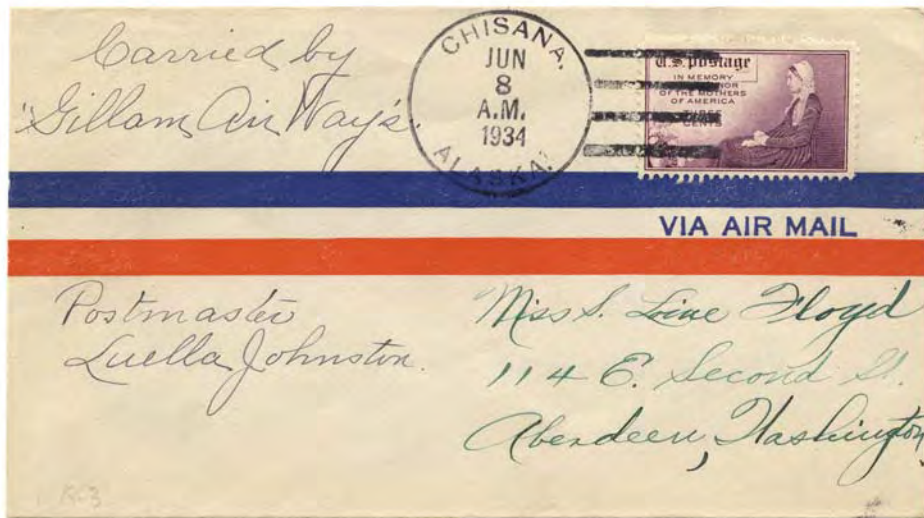 Carried by
"Gillam Air Way's
CHISANA.
JUN
8
A.M.
1934
ALASKA.
U.S. Postage
IN MEMORY
OF THE MOTHERS
OF AMERICA
THREE
CENTS
VIA AIR MAIL
Postmaster
Luella Johnston.
Miss S. Loine Floyd
114 E. Second St.
Aberdeen, Washington